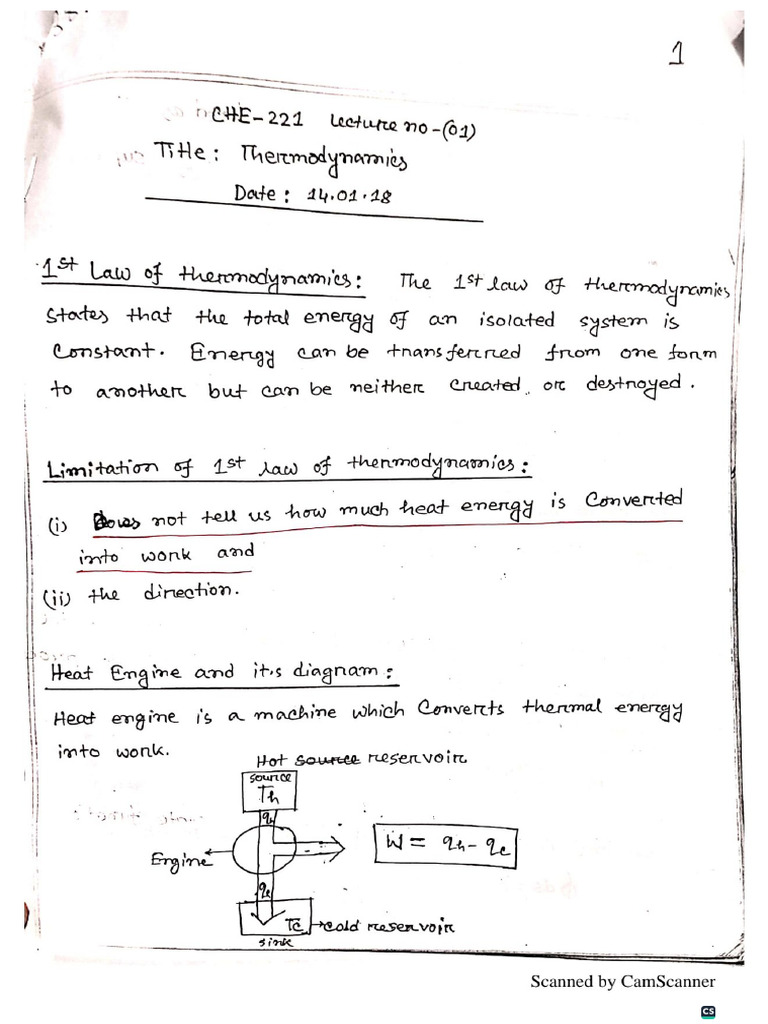 1
CHE-221 Lecture no-(01)
Title: Thermodynamics
Date: 14.01.18
1st Law of thermodynamics: The 1st law of thermodynamics
states that the total energy of an isolated system is
constant. Energy can be transferred from one form
to another but can be neither created or destroyed.
Limitation of 1st law of thermodynamics:
(i) Does not tell us how much heat energy is converted
into work and
(ii) the direction.
Heat Engine and it's diagram:
Heat engine is a machine which converts thermal energy
into work.
Hot source reservoir
source
Th
qh
Engine
W = qh - qc
qc
Tc → cold reservoir
sink
Scanned by CamScanner
CS